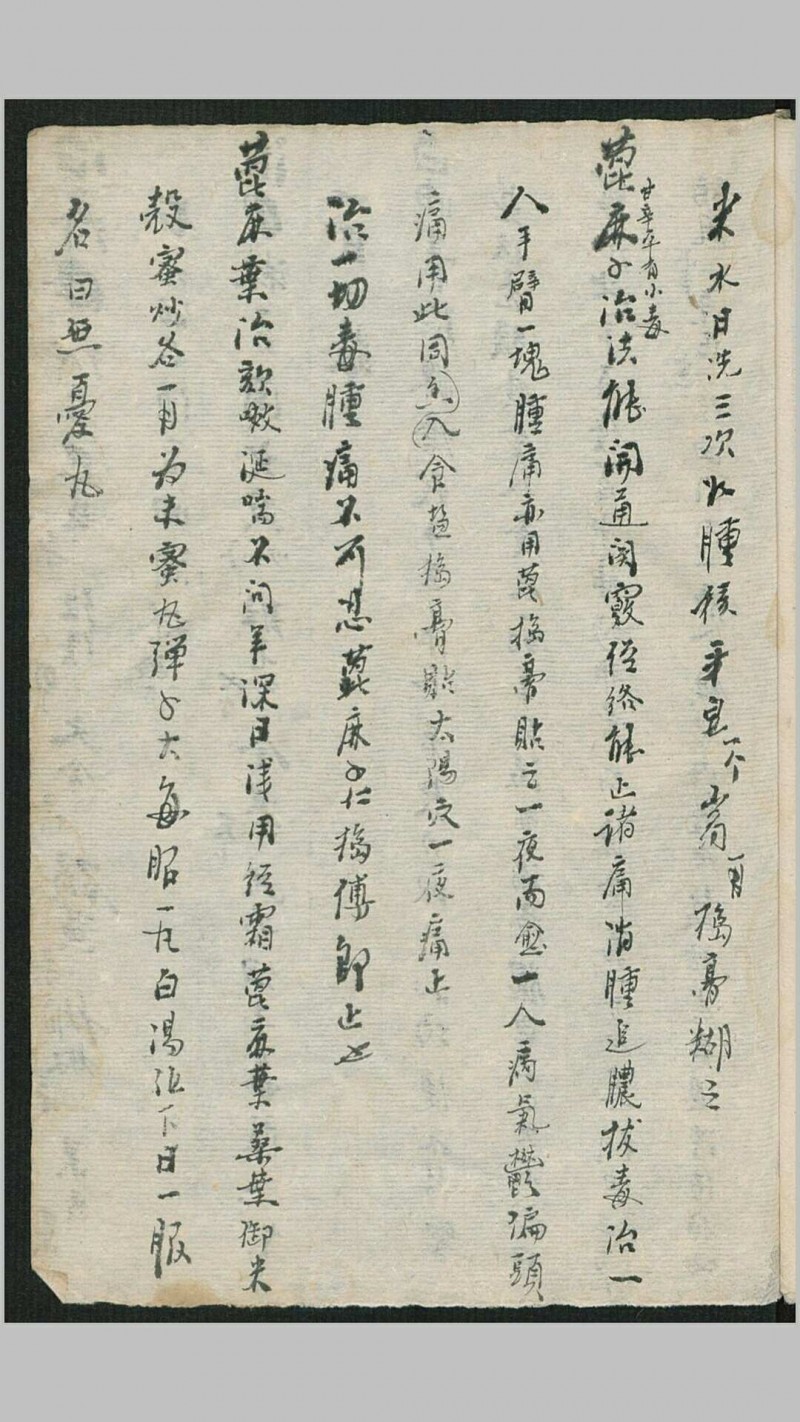 米水日洗三次以腫核牙皂一个
蓖麻子甘辛平有小毒治法能開通関竅經絡能止諸痛消腫追膿拔毒治一
人手臂一塊腫痛亦用蓖搗膏貼之一夜而愈一人病氣鬱偏頭
痛用此同入食塩搗膏貼太陽穴一夜痛止
治一切毒腫痛不可忍蓖麻子仁搗傅即止也
蓖麻葉治欬嗽涎喘不問年深日浅用經霜蓖麻葉桑葉御米
殼蜜炒各一月為末蜜丸弹子大每服一丸白湯化下日一服
名曰無憂丸